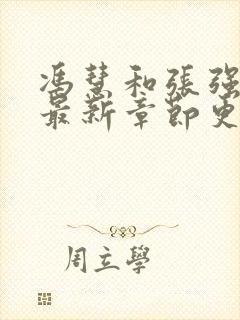 馮慧和張强
最新章節更
周立學